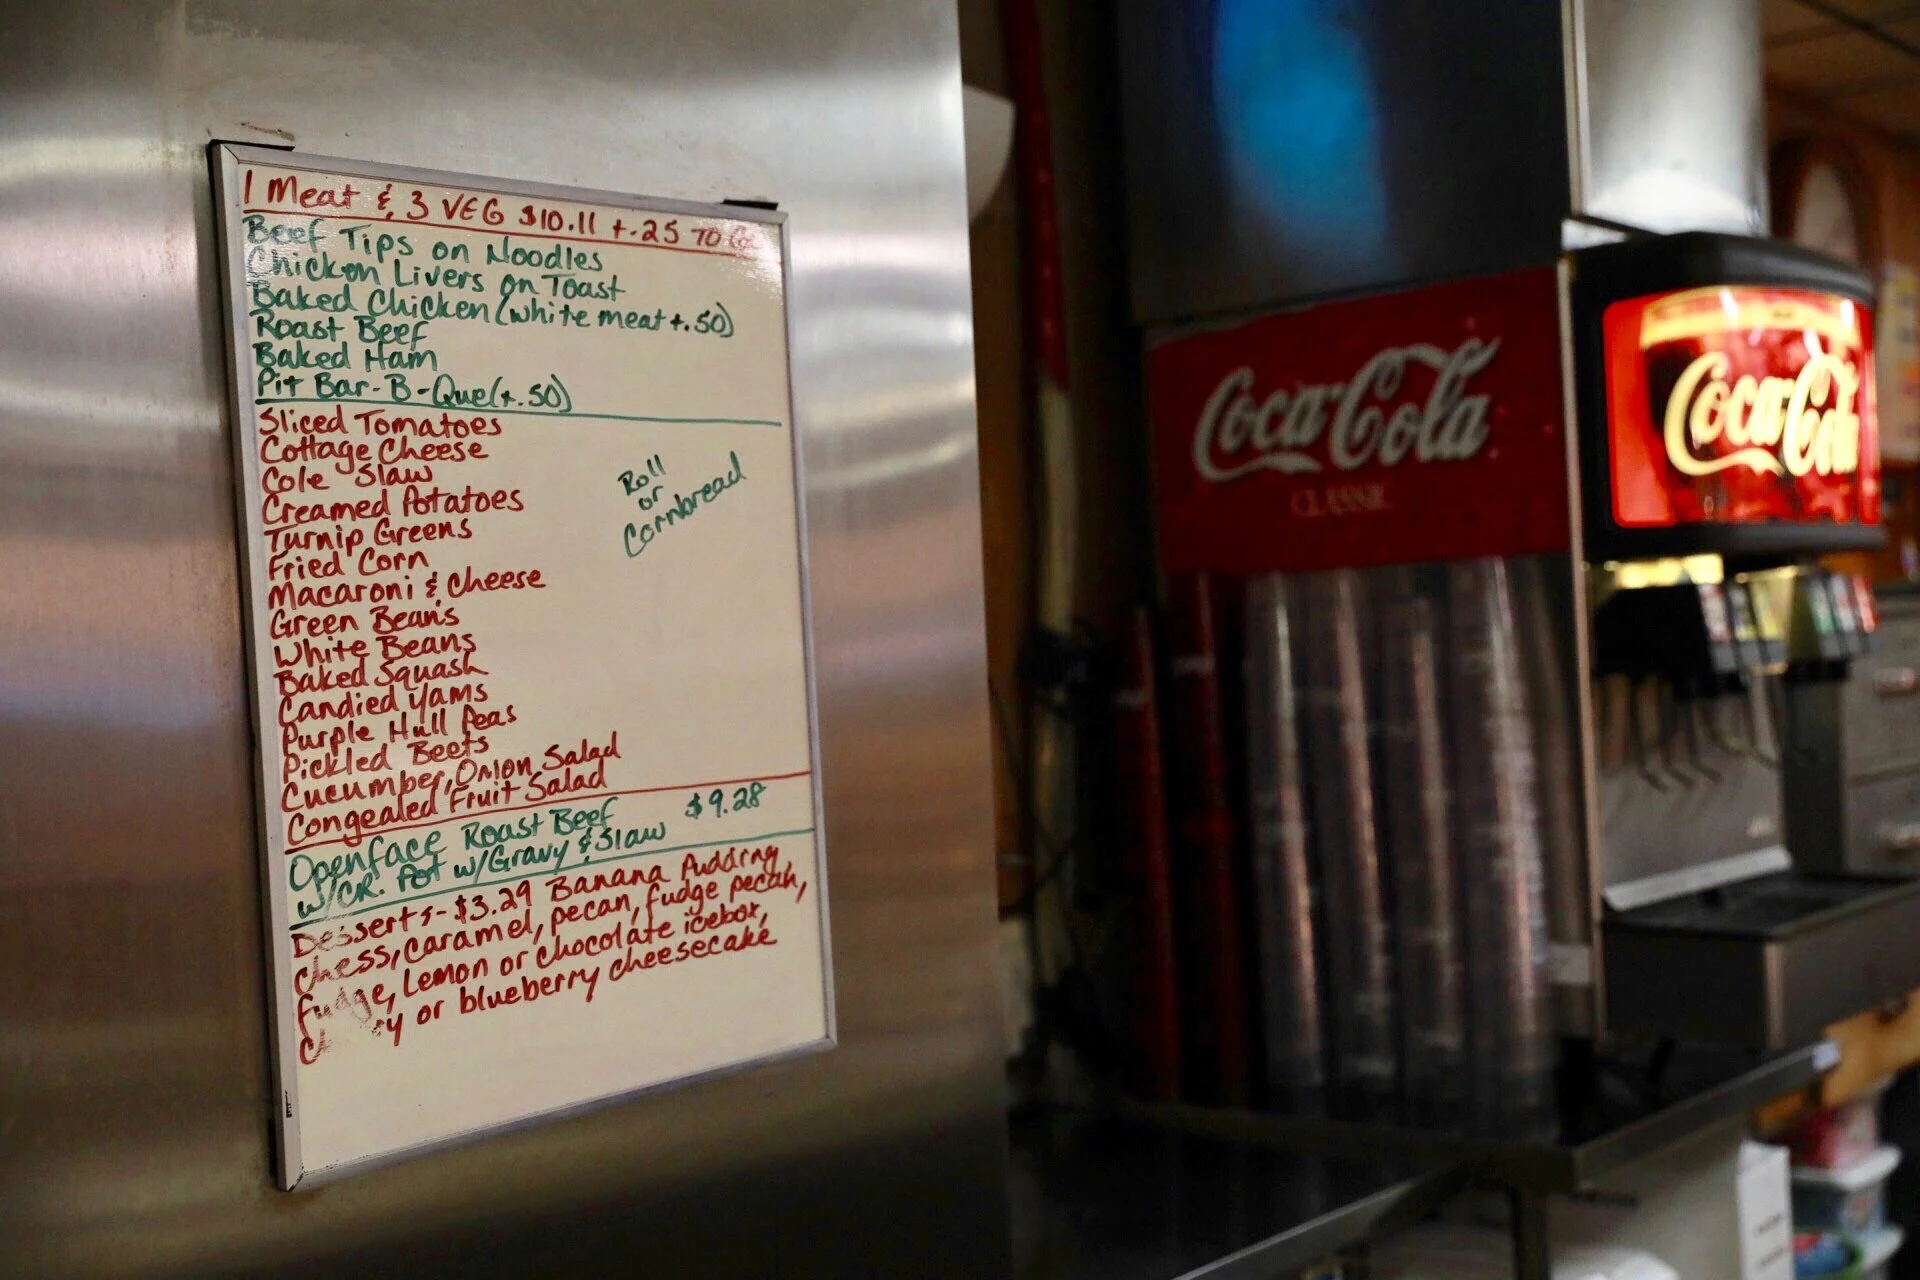 1 Meat & 3 VEG $10.11 +.25 TO Go
Beef Tips on Noodles
Chicken Livers on Toast
Baked Chicken (white meat +.50)
Roast Beef
Baked Ham
Pit Bar-B-Que (+.50)
Sliced Tomatoes
Cottage Cheese
Cole Slaw
Creamed Potatoes
Turnip Greens
Fried Corn
Macaroni & Cheese
Green Beans
White Beans
Baked Squash
Candied Yams
Purple Hull Peas
Pickled Beets
Cucumber, Onion Salad
Congealed Fruit Salad
Roll
or
Cornbread
Openface Roast Beef $9.28
w/CR. Pot w/Gravy & Slaw
Desserts - $3.29 Banana Pudding,
chess, caramel, pecan, fudge pecan,
fudge, Lemon or chocolate icebox,
or blueberry cheesecake
Coca-Cola
CLASSIC
Coca-Cola